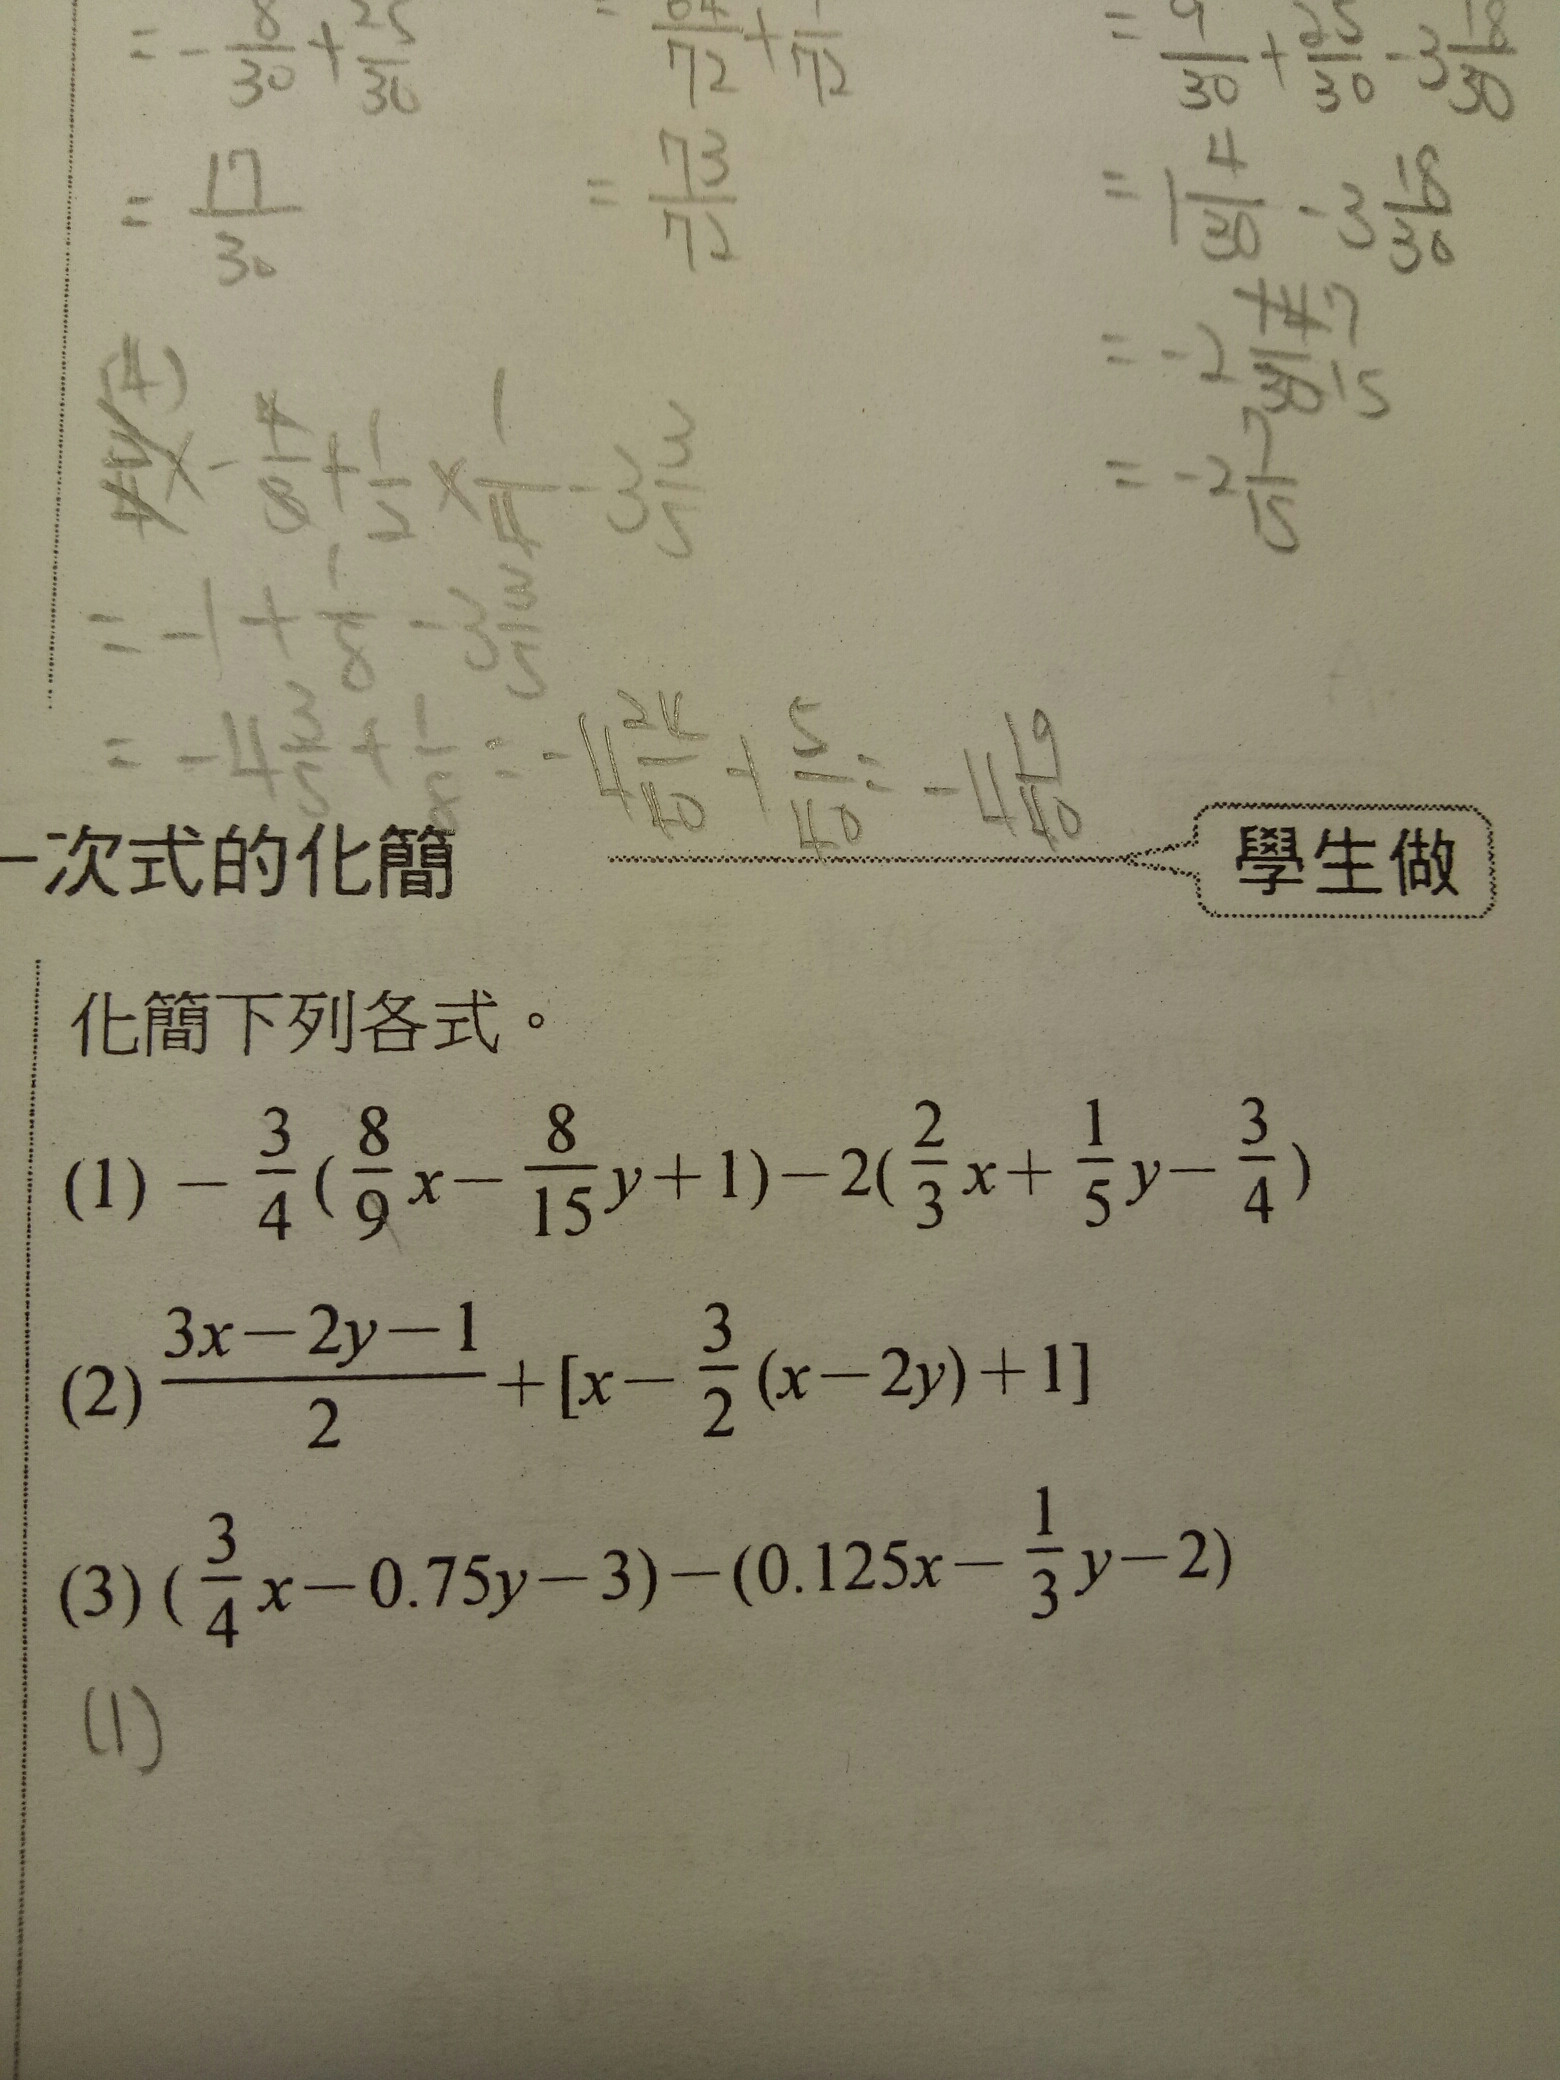 = -8/30 + 25/30
= 64/72 + 1/72
= 9/30 + 25/30 - 3 18/30
= 17/30
= 73/72
= 1 4/30 - 3 18/30
= -2 7/15
= -2 7/15
(4)
x - 4/8 + 1/2 x 1/4 - 3 3/5
= -1 + 1/8 - 3 3/5
= -4 3/5 + 1/8 = -4 24/40 + 5/40 = -4 19/40
一次式的化簡
學生做
化簡下列各式。
(1) -3/4(8/9x-8/15y+1)-2(2/3x+1/5y-3/4)
(2) (3x-2y-1)/2+[x-3/2(x-2y)+1]
(3) (3/4x-0.75y-3)-(0.125x-1/3y-2)
(1)